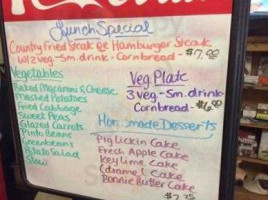 Lunch Special
Country Fried Steak or Hamburger Steak
w/2 veg - Sm. drink - Cornbread - $7.00
Vegetables
Baked Macaroni & Cheese
Mashed Potatoes
Fried Cabbage
Sweet Peas
Glazed Carrots
Pinto Beans
Greenbeans
Potato Salad
Slaw
Veg Plate
3 veg - Sm. drink
Cornbread - $6.00
Homemade Desserts
Pig Lickin Cake
Fresh Apple Cake
Key Lime Cake
Cake
Butter Cake